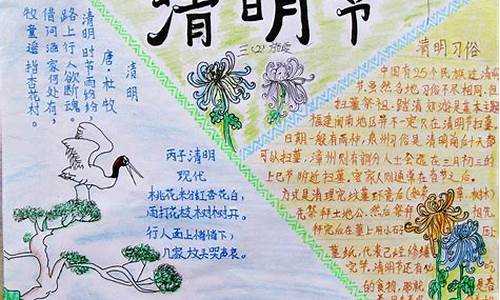 清明节
三(2)
清明
唐·杜牧
清明时节雨纷纷，
路上行人欲断魂。
借问酒家何处有，
牧童遥指杏花村。
丙子清明
现代
桃花米分红杏花白，
雨打花枝树树开。
行人面上情情下，
几家放头哭声哀。
清明习俗
中国有25个民族过清明
节，虽然各地习俗不尽相同，但
扫墓祭祖、踏清郊游是基本主题
福建闽南地区并不一定只在清明节扫墓，
日期一般有两种，泉州习俗是清明前后十天都
可以扫墓，漳州则有部分人士会选在三月初三的
上巳节附近扫墓，客家人则通常在春节之后。
方式是清理完坟墓环境后
先祭拜土地公，然后祭拜
拜完后在墓上用小石
墓纸，代表已经修缮
完毕。清明节还有
的食物，那就